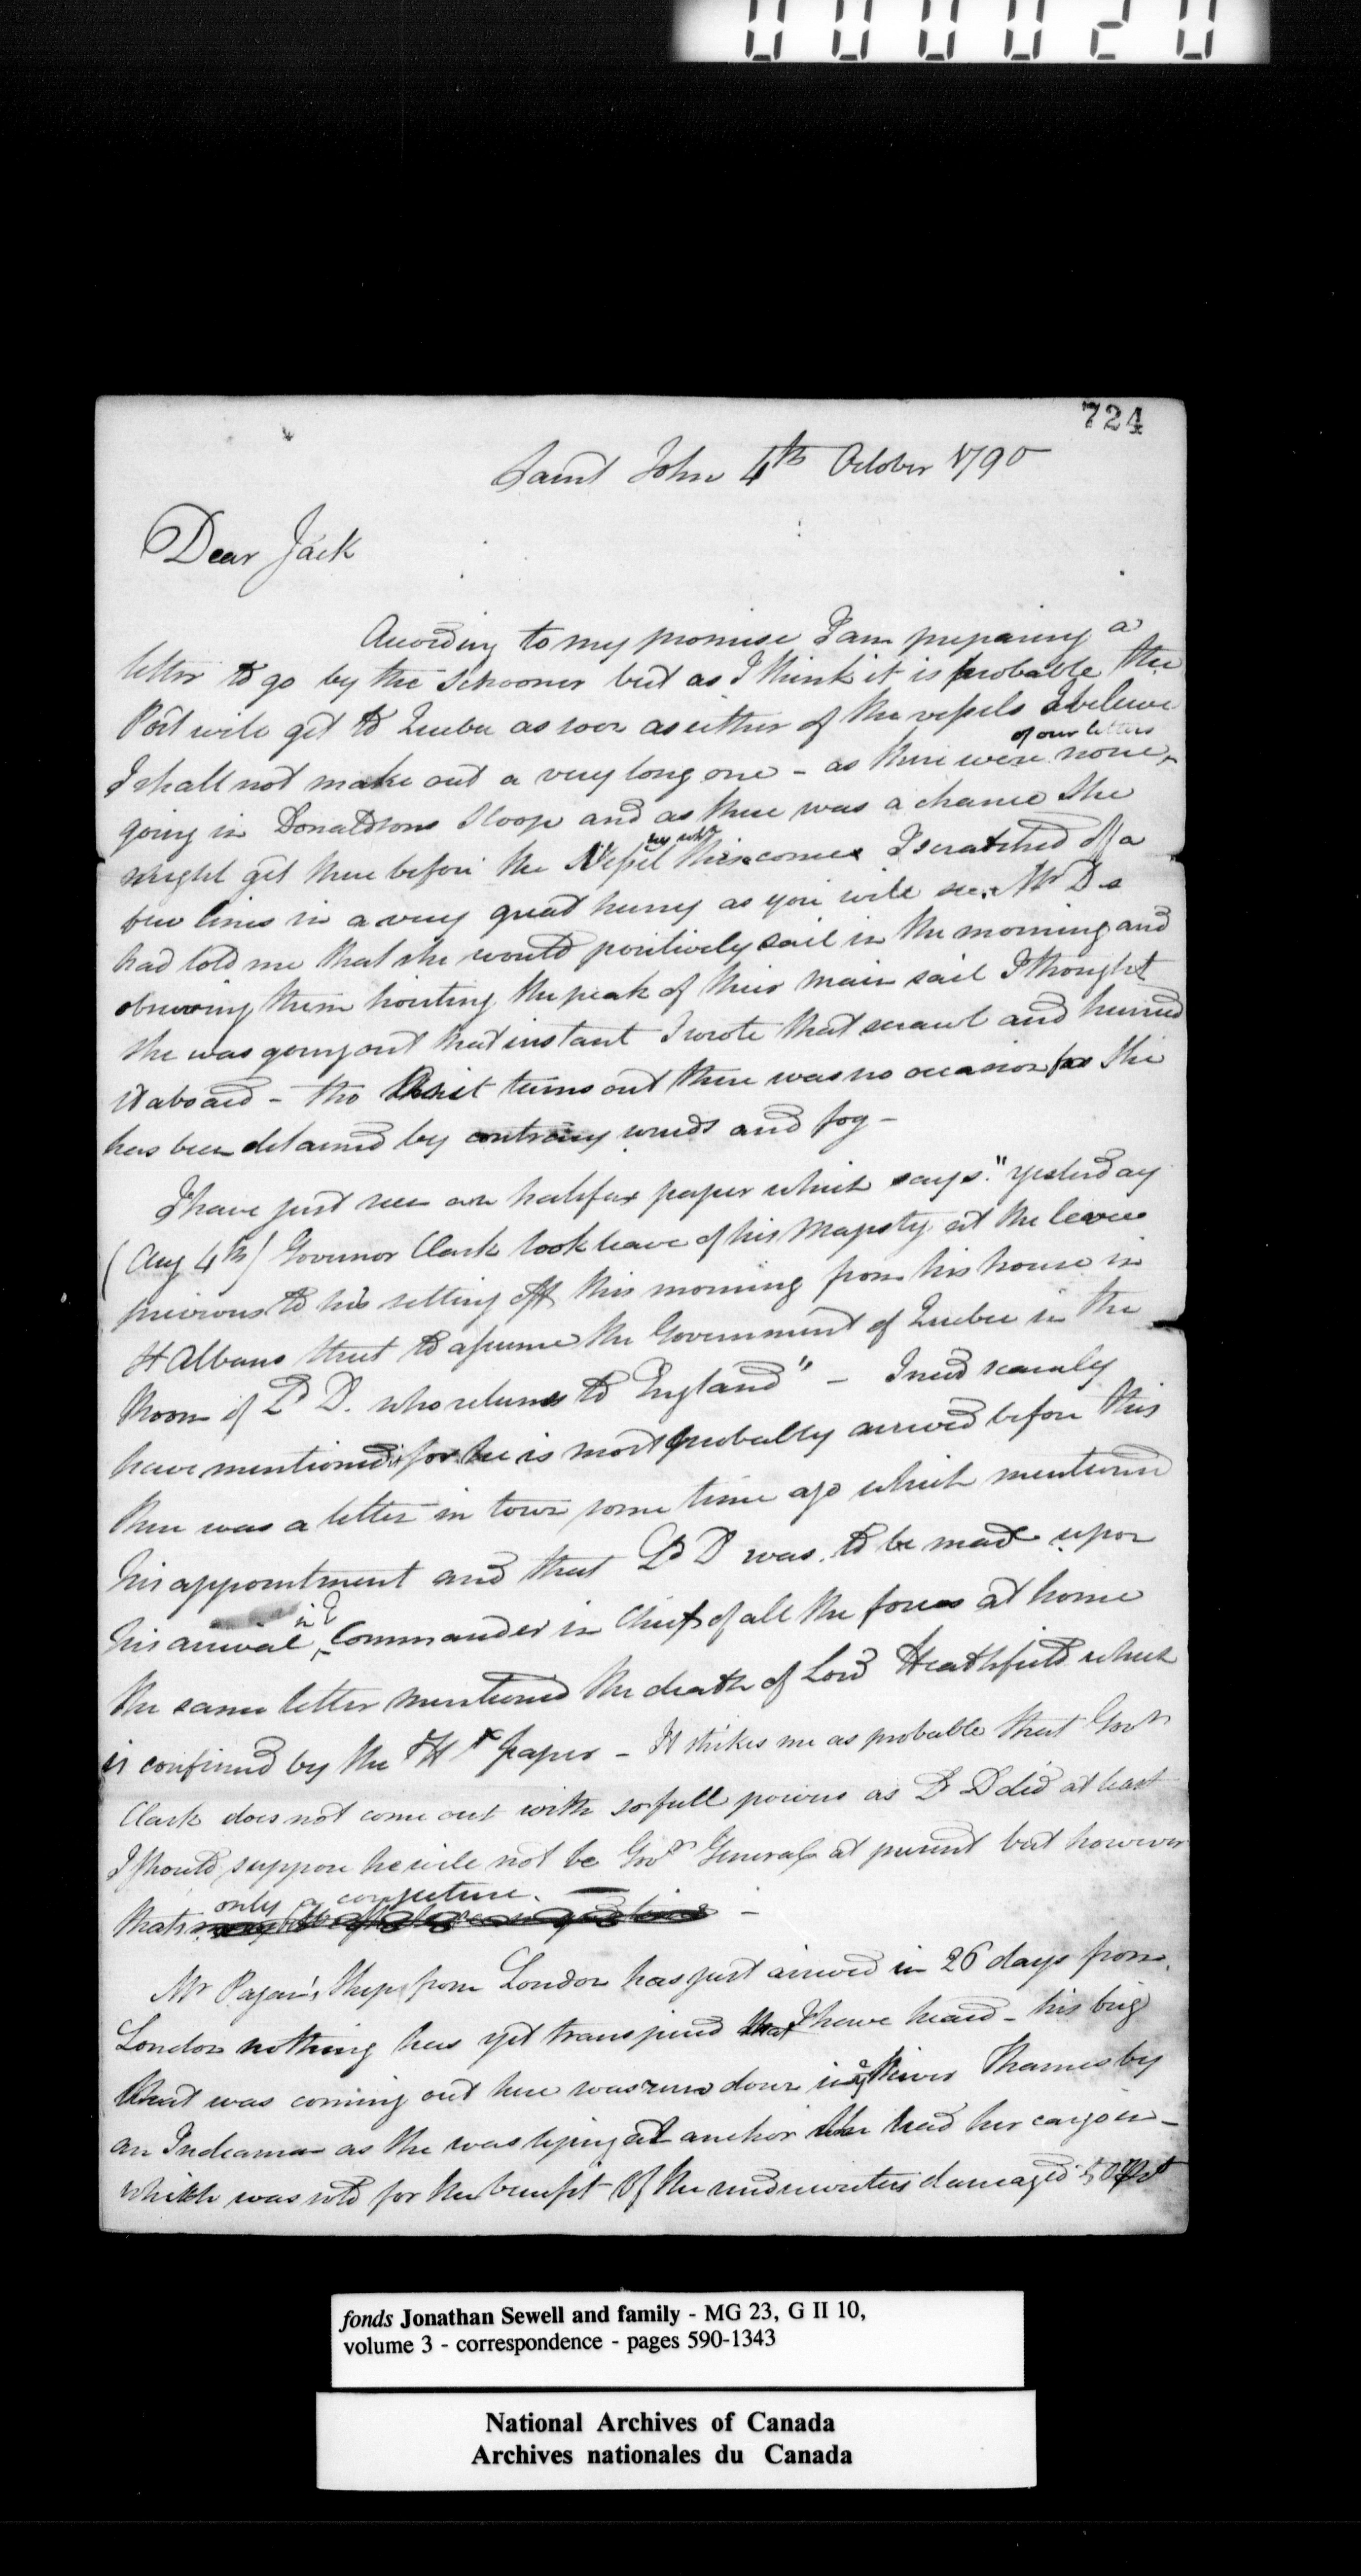 000020
724
Saint John 4th October 1790
Dear Jack
According to my promise I am preparing a
letter to go by the schooner but as I think it is probable the
Post will get to Quebec as soon as either of the vessels I beleive
I shall not make out a very long one - as there were none
of our letters
going in Donaldsons Sloop and as there was a chance she
might get there before the Vessel this comes I scratched off a
few lines in a very great hurry as you will see. Mr D.s
had told me that she would positively sail in the morning and
observing them hoisting the peak of their main sail I thought
she was going out that instant I wrote that scrawl and hurried
it aboard - tho it turns out there was no occasion for she
has been detained by contrary winds and fog -
I have just seen an halifax paper which says "yesterday
(Aug 4th) Governor Clark took leave of his Majesty at the levee
previous to his setting off this morning from his house in
St Albans street to assume the Government of Quebec in the
Room of Ld D. who returns to England" - I need scarcely
have mentioned it for he is most probably arrived before this
there was a letter in town some time ago which mentioned
his appointment and that Ld D was to be made upon
his arrival in E Commander in Chief of all the forces at home
the same letter mentioned the death of Lord Heathfield which
is confirmed by the Hx paper - It strikes me as probable that Govr
Clark does not come out with so full powers as Ld D did at least
I should suppose he will not be Govr General at present but however
thats only a conjecture. -
Mr Pagan's Ship from London has just arrived in 26 days from
London nothing has yet transpired that I have heard - his brig
that was coming out here was run down in ye River Thames by
an Indiaman as she was lying at anchor she had her cargo in -
which was sold for the benefit of the underwriters damaged 50
fonds Jonathan Sewell and family - MG 23, G II 10,
volume 3 - correspondence - pages 590-1343
National Archives of Canada
Archives nationales du Canada